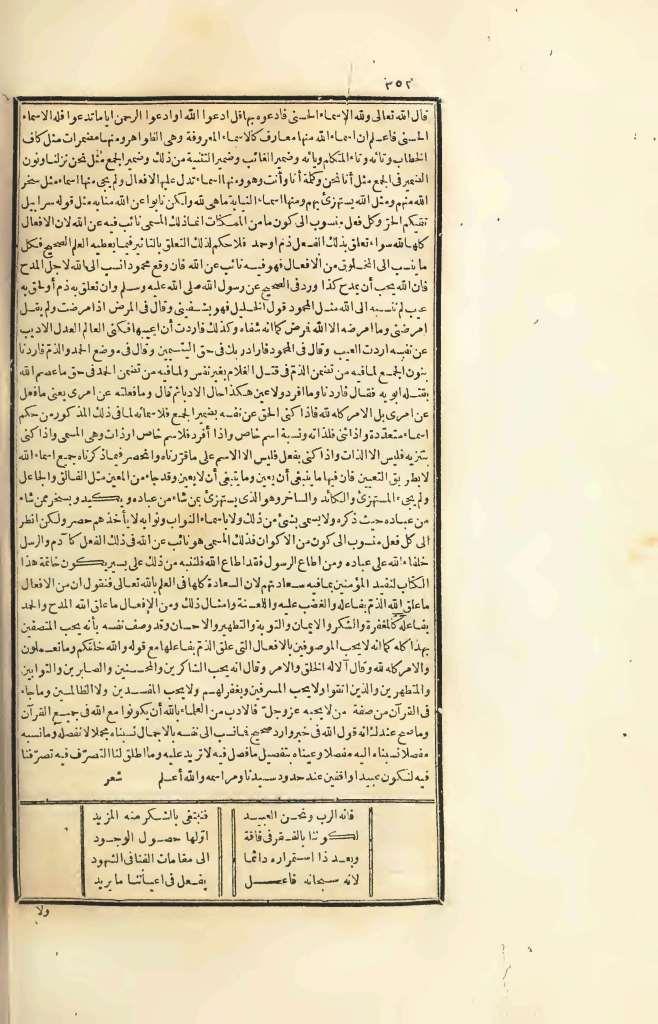 ٣٥٢
قال الله تعالى ولله الاسماء الحسنى فادعوه بها قل ادعوا الله او ادعوا الرحمن اياما تدعوا فله الاسماء
الحسنى فاعلم ان اسماء الله منها معارف كالاسماء المعروفة وهى الظواهر ومنها مضمرات مثل كاف
الخطاب وتائه وتاء المتكلم ويائه وضمير الغائب وضمير التثنية من ذلك وضمير الجمع مثل نحن نزلنا ونون
الضمير فى الجمع مثل أنا نحن وكلمة أنا وأنت وهو ومنها اسماء تدل عليها الافعال ولم يجئ منها اسماء مثل سخر
الله منهم ومثل الله يستهزئ بهم ومنها اسماء النيابة ماهى لله ولكن نابوا عن الله منابه مثل قوله سرابيل
تقيكم الحر وكل فعل منسوب الى كون ما من الممكنات انما ذلك المسمى نائب فيه عن الله لان الافعال
كلها لله سواء تعلق بذلك الفعل ذم او حمد فلا حكم لذلك التعلق بالتأثير فيما يعطيه العلم الصحيح فكل
ما ينسب الى المخلوق من الافعال فهو فيه نائب عن الله فان وقع محمودا نسب الى الله لاجل المدح
فان الله يحب أن يمدح كذا ورد فى الصحيح عن رسول الله صلى الله عليه وسلم وان تعلق به ذم أو لحق به
عيب لم ننسبه الى الله مثل المحمود قول الخليل فهو يشفينى وقال فى المرض اذا مرضت ولم يقل
امرضنى وما امرضه الا الله فمرض كما انه شفاه وكذلك فاردت أن اعيبها فكنى العالم العدل الاديب
عن نفسه ارادت العيب وقال فى المحمود فاراد ربك فى حق اليتيمين وقال فى موضع الحمد والذم فاردنا
بنون الجمع لما فيه من تضمن الذم فى قتل الغلام بغير نفس ولما فيه من تضمن الحمد فى حق ما عصم الله
بقتله ابويه فقال فاردنا وما افرد ولا عين هكذا حال الادباء ثم قال وما فعلته عن امرى يعنى ما فعل
عن امرى بل الامر كله لله فاذا كنى الحق عن نفسه بضمير الجمع فلاسمائه لما فى ذلك المذكور من حكم
اسماء متعددة واذا ثنى فلذاته ونسبة اسم خاص واذا أفرد فلاسم خاص او ذات وهى المسمى واذا كنى
بتنزيه فليس الا الذات واذا كنى بفعل فليس الا الاسم على ما قررناه وانحصر فيما ذكرناه جميع اسماء الله
لا بطريق التعيين فان فيها ما ينبغى أن يعين وما ينبغى أن لا يعين وقد جاء من المعين مثل الفالق والجاعل
ولم يجئ المستهزئ والكائد والساخر وهو الذى يستهزئ بمن شاء من عباده ويكيد ويسخر ممن شاء
من عباده حيث ذكره ولا يسمى بشئ من ذلك ولا باسماء النواب ونوابه لا يأخذهم حصر ولكن انظر
الى كل فعل منسوب الى كون من الاكوان فذلك المسمى هو نائب عن الله فى ذلك الفعل كآدم والرسل
خلفاء الله على عباده ومن اطاع الرسول فقد اطاع الله فلننبه من ذلك على يسير يكون خاتمة هذا
الكتاب لنفيد المؤمنين بما فيه سعادتهم لان السعادة كلها فى العلم بالله تعالى فنقول ان من الافعال
ما علق الله الذم بفاعله والغضب عليه واللعنة وامثال ذلك ومن الافعال ما علق الله المدح والحمد
بفاعله كالمغفرة والشكر والايمان والتوبة والتطهير والاحسان وقد وصف نفسه بأنه يحب المتصفين
بهذا كله كما انه لا يحب الموصوفين بالافعال التى علق الذم بفاعلها مع قوله والله خلقكم وما تعملون
والامر كله لله وقال ألا له الخلق والامر وقال انه يحب الشاكرين والمحسنين والصابرين والتوابين
والمتطهرين والذين اتقوا ولا يحب المسرفين ويغفر لهم ولا يحب المفسدين ولا الظالمين وما جاء
فى القرآن من صفة من لا يحبه عز وجل فالادب من العلماء بالله أن يكونوا مع الله فى جميع القرآن
وما صح عندك انه قول الله فى خبر وارد صحيح فما نسب الى نفسه بالاجمال نسبناه مجملا لا نفصله وما نسبه
مفصلا نسبناه اليه مفصلا وعيناه بتفصيل ما فصل فيه لا نزيد عليه وما اطلق لنا التصرف فيه تصرفنا
فيه لنكون عبيدا واقفين عند حدود سيدنا ومراسمه والله أعلم شعر
فانه الرب ونحن العبيد فنبتغى بالشكر منه المزيد
لكوننا بالفقر فى فاقة اولها حصول الوجود
وبعد ذا استمراره دائما الى مقامات الفنا فى الشهود
لانه سبحانه فاعل يفعل فى اعياننا ما يريد
ولا